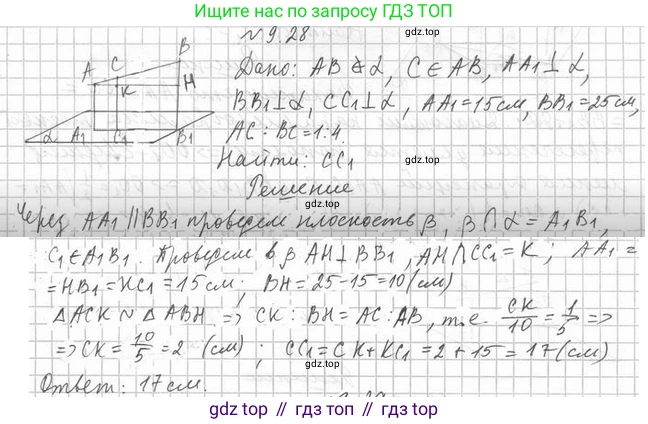 Ищите нас по запросу ГДЗ ТОП
gdz.top
№9.28
Дано: AB ⊄ α, C ∈ AB, AA₁ ⊥ α,
BB₁ ⊥ α, CC₁ ⊥ α, AA₁ = 15 см, BB₁ = 25 см,
AC : BC = 1:4.
Найти: CC₁
gdz.top
Решение
A C B
K H
α A₁ C₁ B₁
Через AA₁ || BB₁ проведем плоскость β, β ∩ α = A₁B₁,
gdz.top
C₁ ∈ A₁B₁. Проведем в β AH ⊥ BB₁, AH ∩ CC₁ = K; AA₁ =
= HB₁ = KC₁ = 15 см; BH = 25 - 15 = 10 (см)
△ACK ~ △ABH => CK : BH = AC : AB, т.е. CK/10 = 1/5 =>
=> CK = 10/5 = 2 (см); CC₁ = CK + KC₁ = 2 + 15 = 17 (см)
gdz.top
Ответ: 17 см.
gdz top // гдз топ // gdz.top